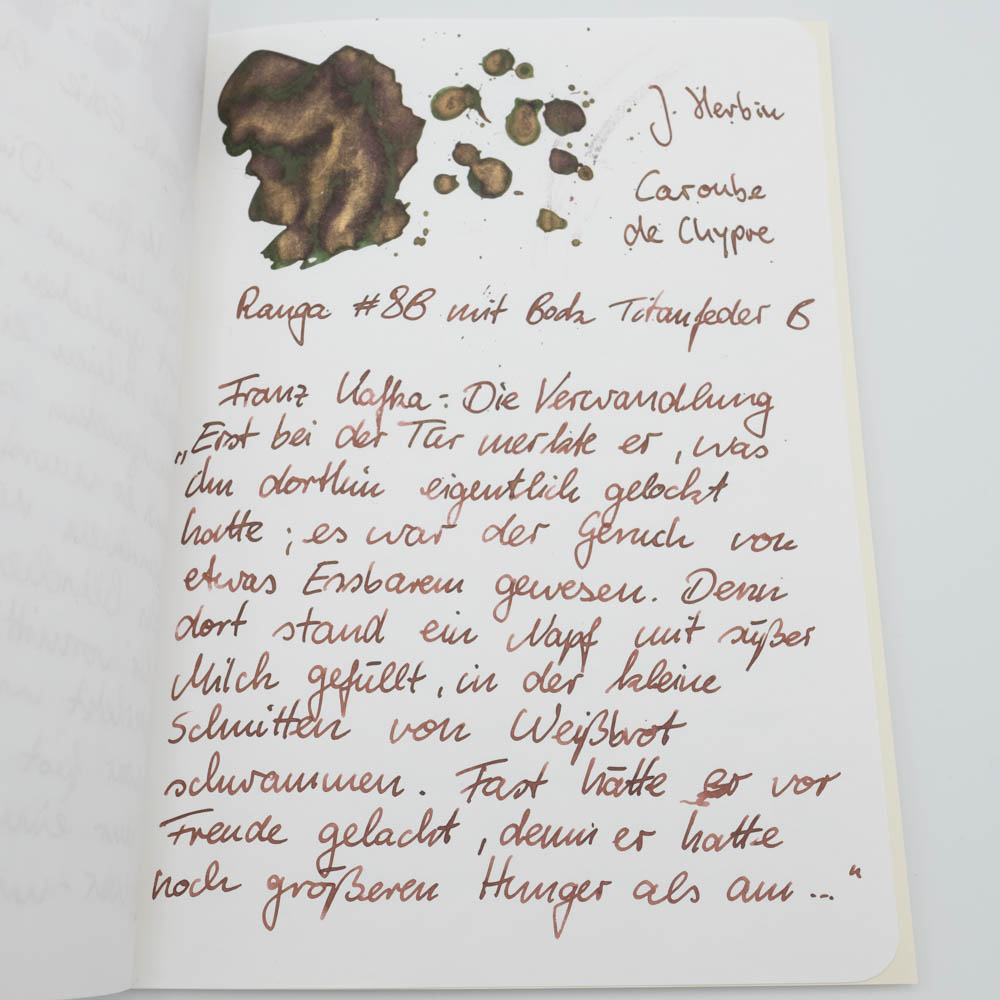 J. Herbin
Caroube
de Chypre
Ranga #8B mit Bock Titanfeder B
Franz Kafka: Die Verwandlung
„Erst bei der Tür merkte er, was
ihn dorthin eigentlich gelockt
hatte; es war der Geruch von
etwas Essbarem gewesen. Denn
dort stand ein Napf mit süßer
Milch gefüllt, in der kleine
Schnitten von Weißbrot
schwammen. Fast hätte er vor
Freude gelacht, denn er hatte
noch größeren Hunger als am..."